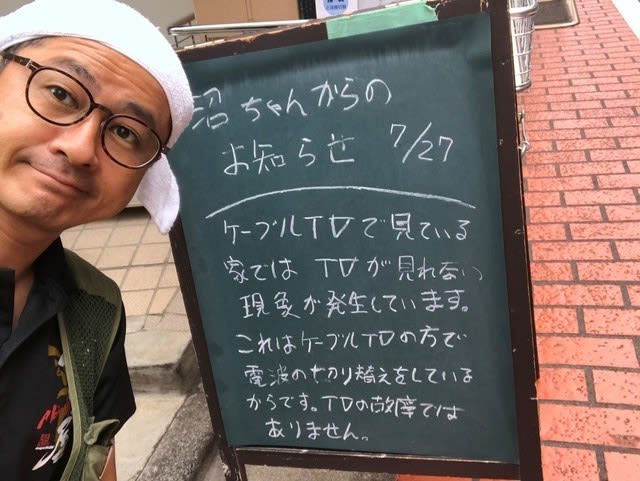 沼ちゃんからの
お知らせ 7/27
ケーブルTVで見ている
家ではTVが見れない
現象が発生しています。
これはケーブルTVの方で
電波の切り替えをしている
からです。TVの故障では
ありません。